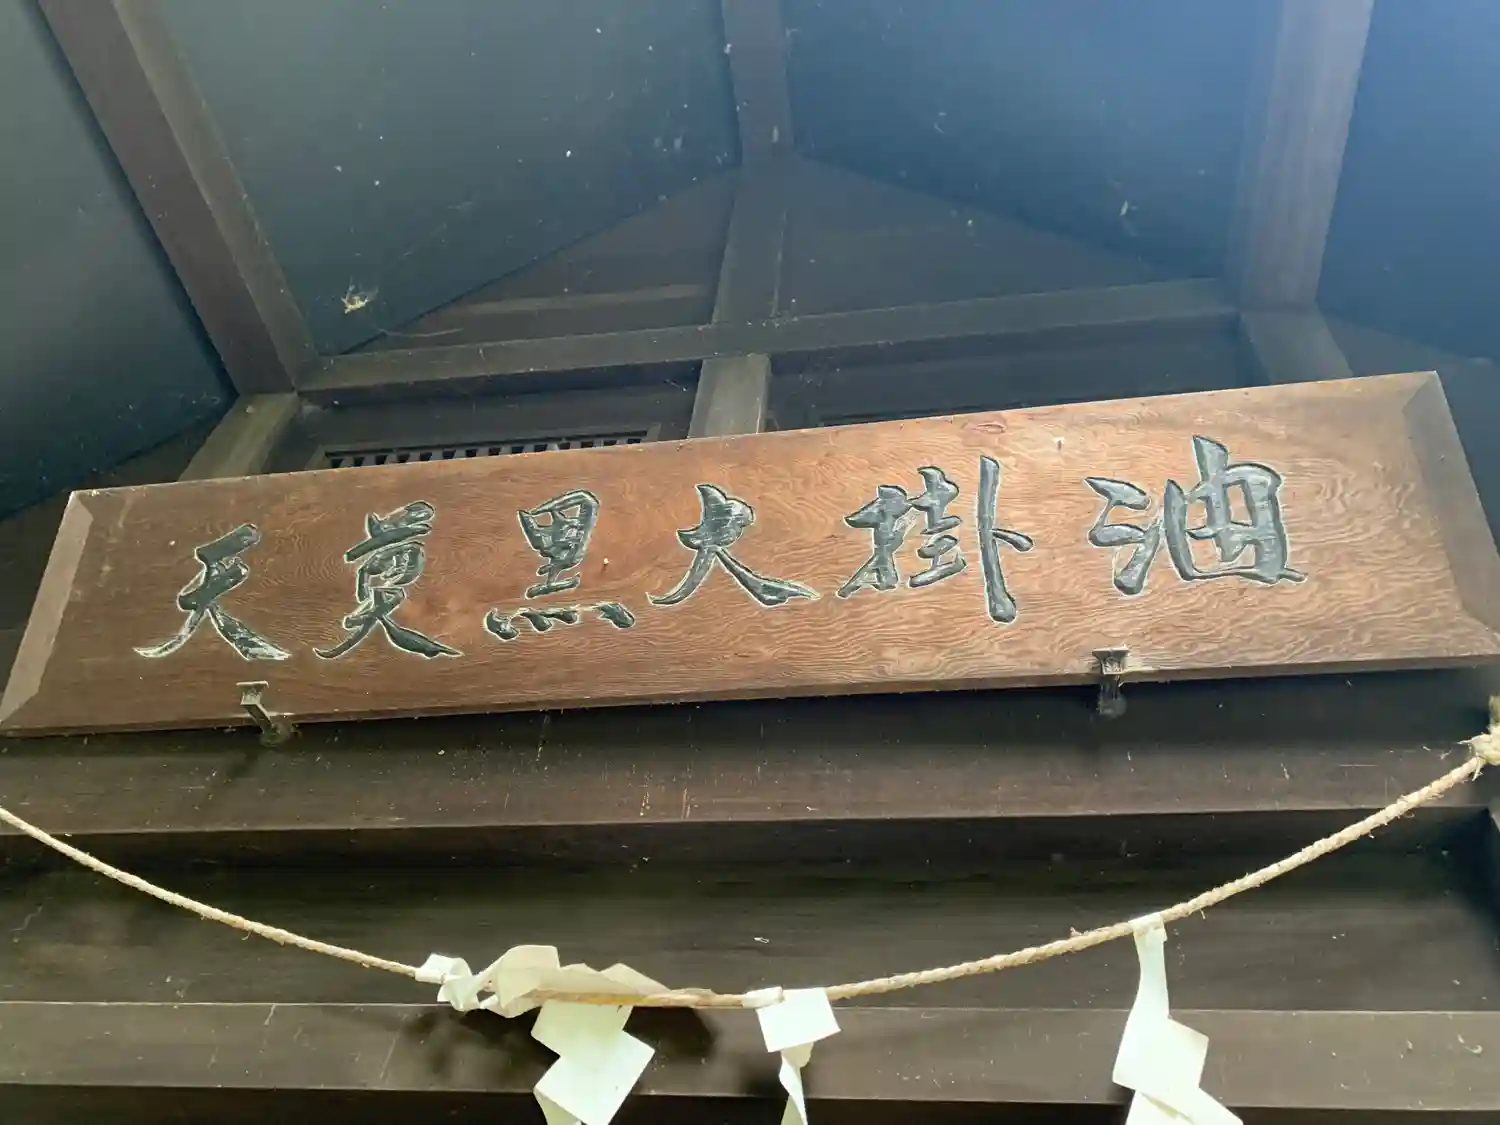 油掛大黒尊天